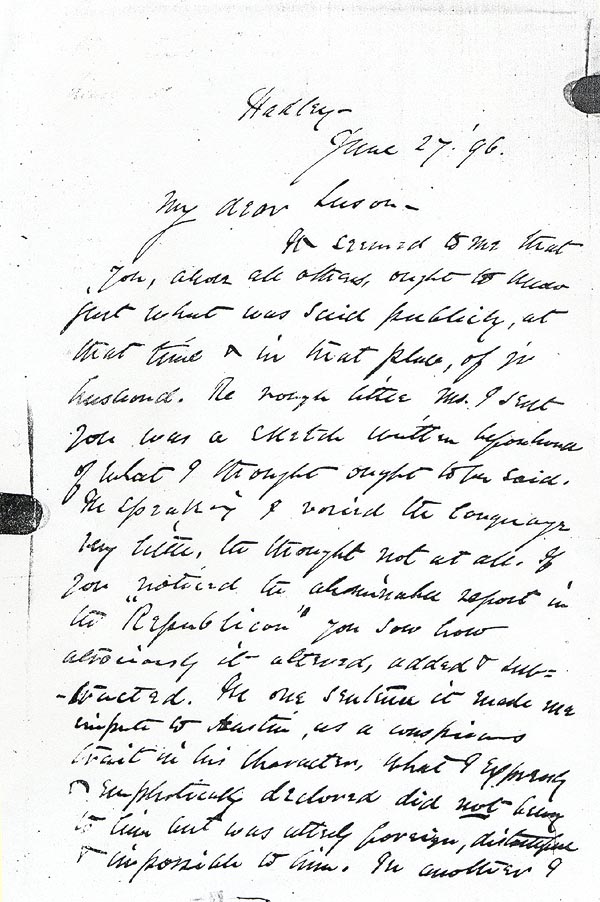 Hadley-
June 27. '96.
My dear Susan-
It seemed to me that
you, above all others, ought to know
just what was said publicly, at
that time & in that place, of yr
husband. The rough little Ms. I sent
you was a sketch written beforehand
of what I thought ought to be said.
In speaking I varied the language
very little, the thought not at all. If
you noticed the abominable report in
the "Republican" you saw how
atrociously it altered, added & sub-
-tracted. In one sentence it made me
impute to Austin, as a conspicuous
trait in his character, what I expressly
& emphatically declared did not belong
to him but was utterly foreign, distasteful
& impossible to him. In another I